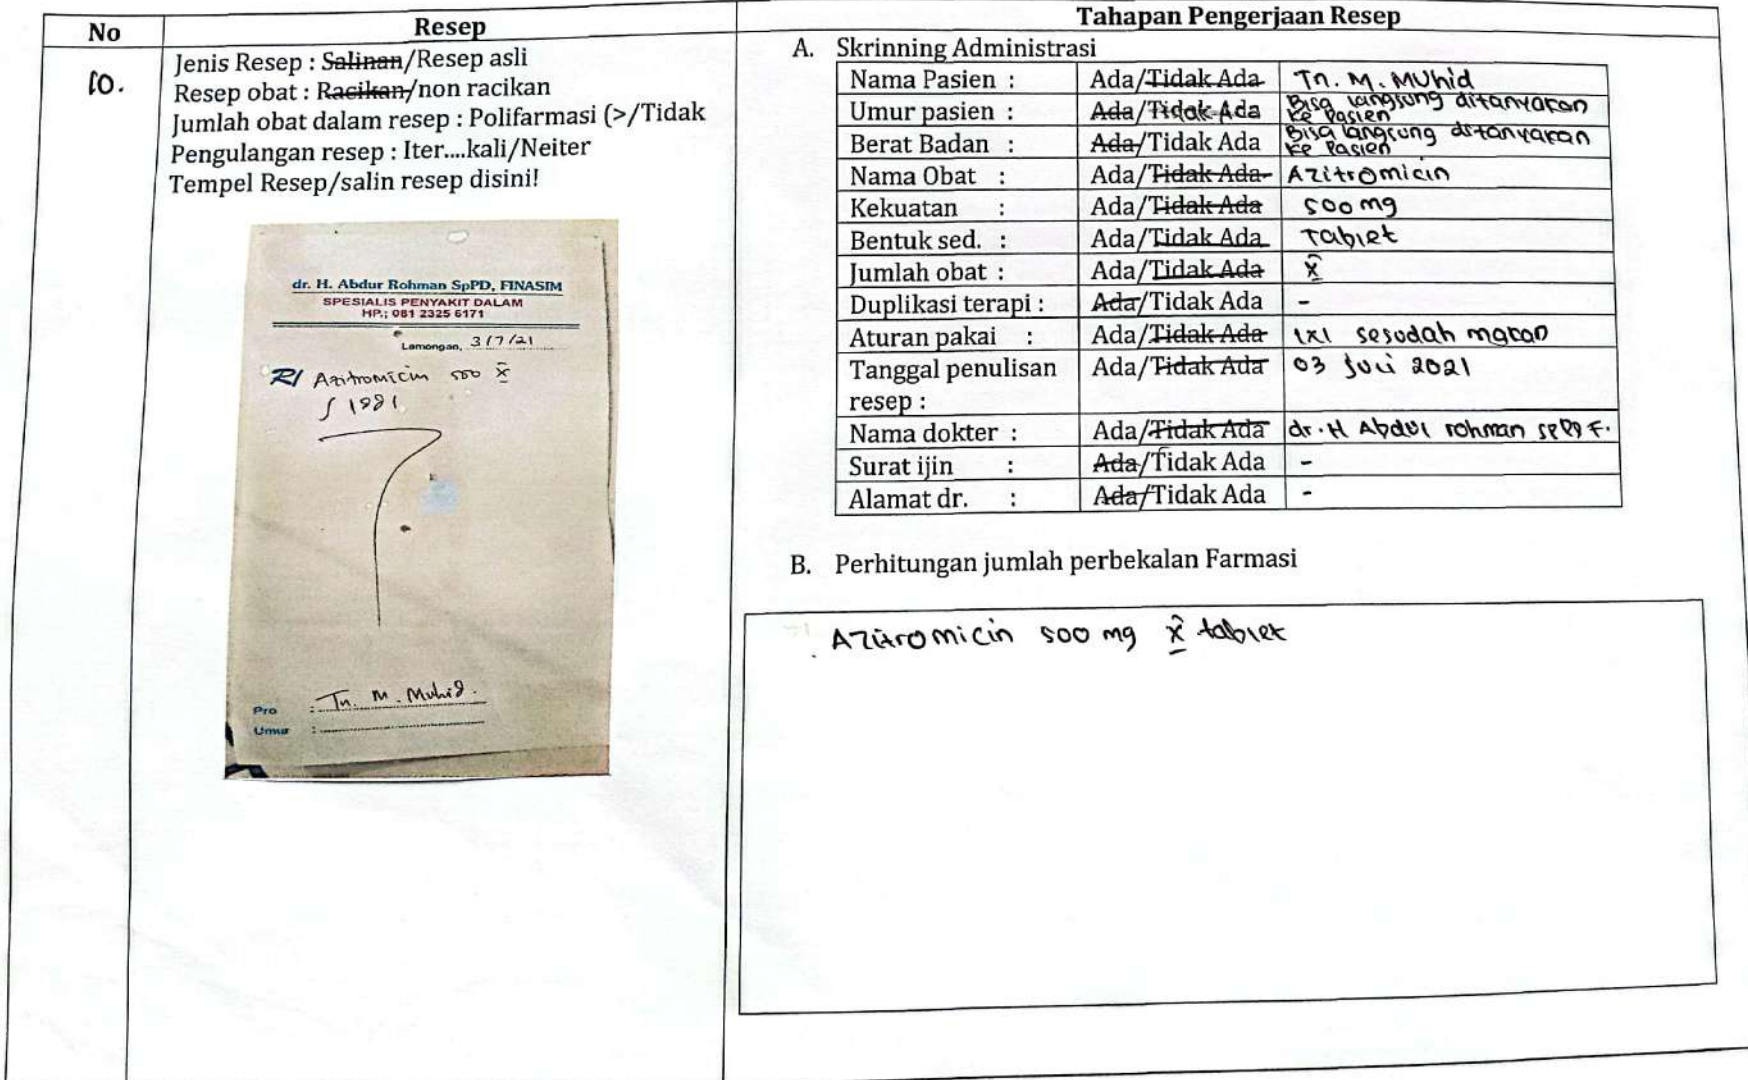 No
Resep
Tahapan Pengerjaan Resep
10.
Jenis Resep : Salinan/Resep asli
Resep obat : Racikan/non racikan
Jumlah obat dalam resep : Polifarmasi (>/Tidak
Pengulangan resep : Iter....kali/Neiter
Tempel Resep/salin resep disini!
dr. H. Abdur Rohman SpPD, FINASIM
SPESIALIS PENYAKIT DALAM
HP.; 081 2325 6171
Lamongan, 3/7/21
R/ Azitromicin 500 X
S 1dd1
Pro : Tn. M. Muhid.
Umur :
A. Skrinning Administrasi
Nama Pasien : Ada/Tidak Ada Tn. M. Muhid
Umur pasien : Ada/Tidak Ada Bisa langsung ditanyakan ke Pasien
Berat Badan : Ada/Tidak Ada Bisa langsung ditanyakan ke Pasien
Nama Obat : Ada/Tidak Ada Azitromicin
Kekuatan : Ada/Tidak Ada 500 mg
Bentuk sed. : Ada/Tidak Ada Tablet
Jumlah obat : Ada/Tidak Ada X
Duplikasi terapi : Ada/Tidak Ada -
Aturan pakai : Ada/Tidak Ada 1x1 sesudah makan
Tanggal penulisan Ada/Tidak Ada 03 Juli 2021
resep :
Nama dokter : Ada/Tidak Ada dr. H Abdul rohman SpPD F.
Surat ijin : Ada/Tidak Ada -
Alamat dr. : Ada/Tidak Ada -
B. Perhitungan jumlah perbekalan Farmasi
Azitromicin 500 mg X tablet